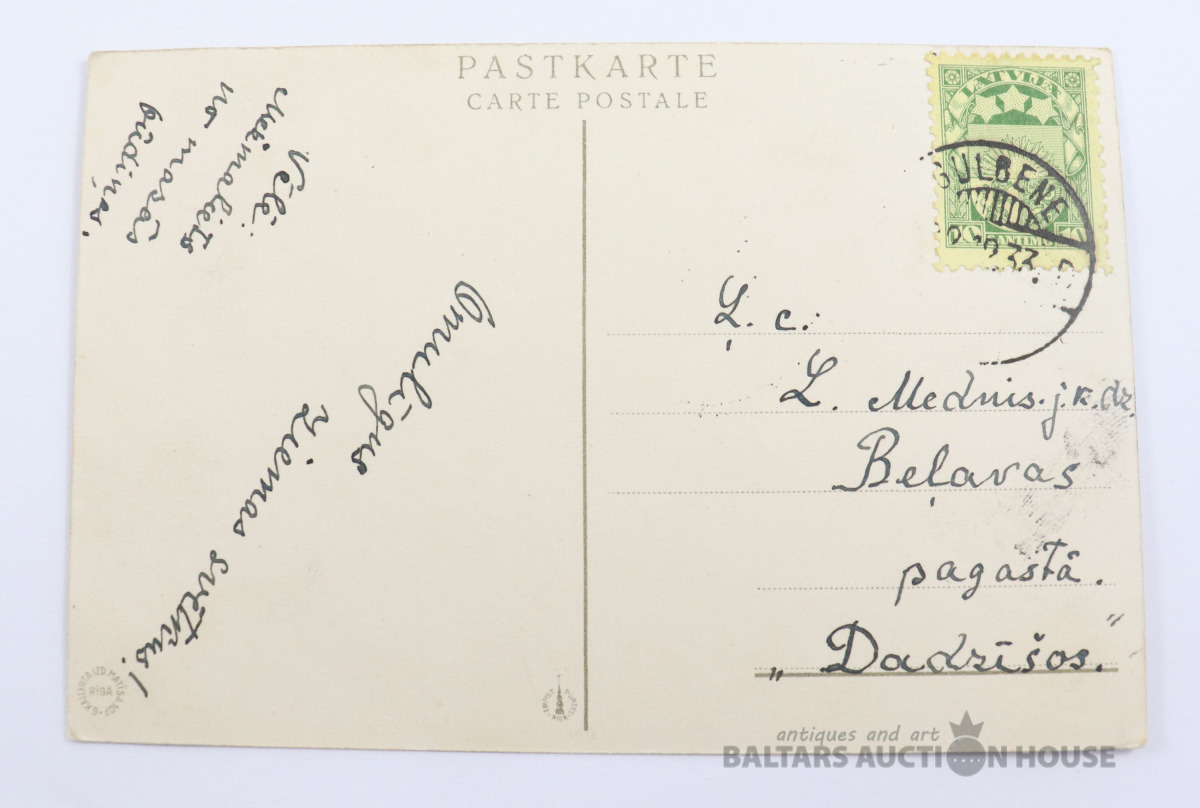 PASTKARTE
CARTE POSTALE
LATVIJA
SANTIMU
GULBENE
33.
Omulīgus
Ziemas svētkus!
Vēlē:
no masās
būdiņas.
Ļ. c.
L. Mednis. j. k. dz.
Beļavas
pagastā.
„Dadzīšos."
RĪGA
antiques and art
BALTARS AUCTION HOUSE